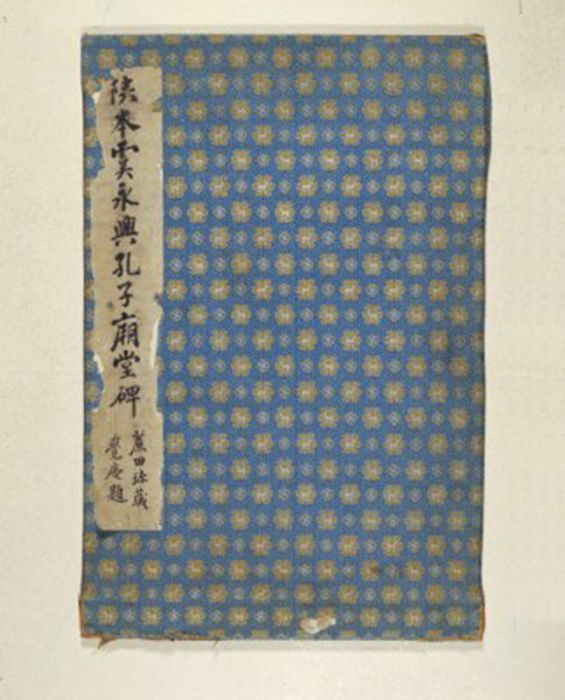 陝本虞永興孔子廟堂碑
蔗田珎藏
覺庵題